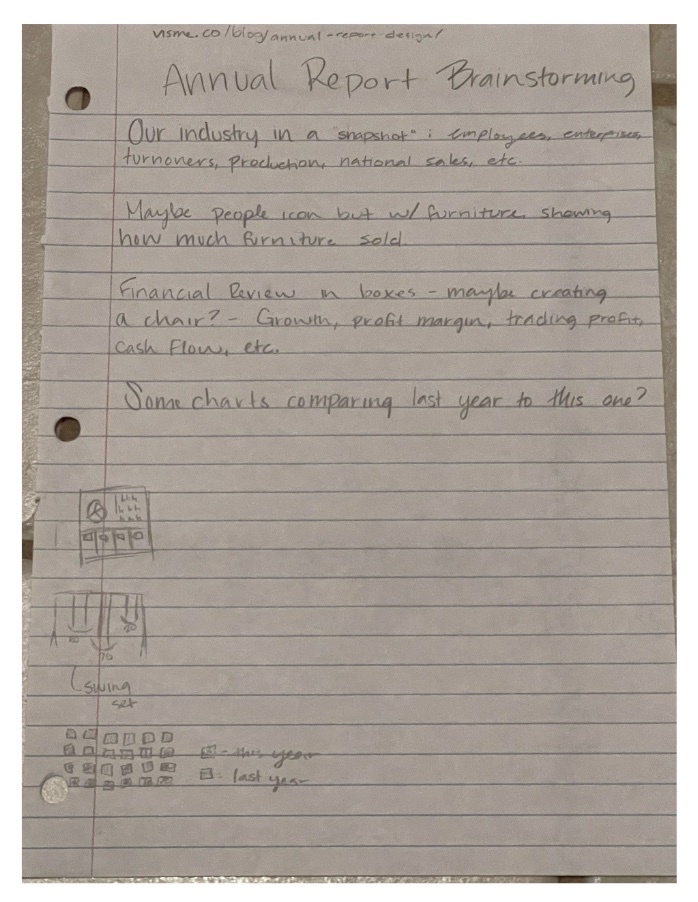 visme.co/blog/annual-report-design/
Annual Report Brainstorming
Our industry in a "snapshot": employees, enterprises,
turnovers, production, national sales, etc.
Maybe people icon but w/ furniture showing
how much furniture sold.
Financial Review in boxes - maybe creating
a chair? - Growth, profit margin, trading profit,
cash flow, etc.
Some charts comparing last year to this one?
70
swing
set
- this year
- last year